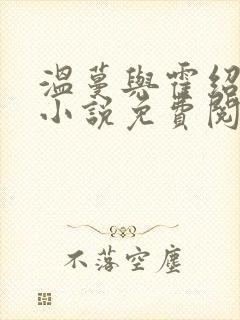 溫蔓與霍紹
小說免費閱
不落空塵